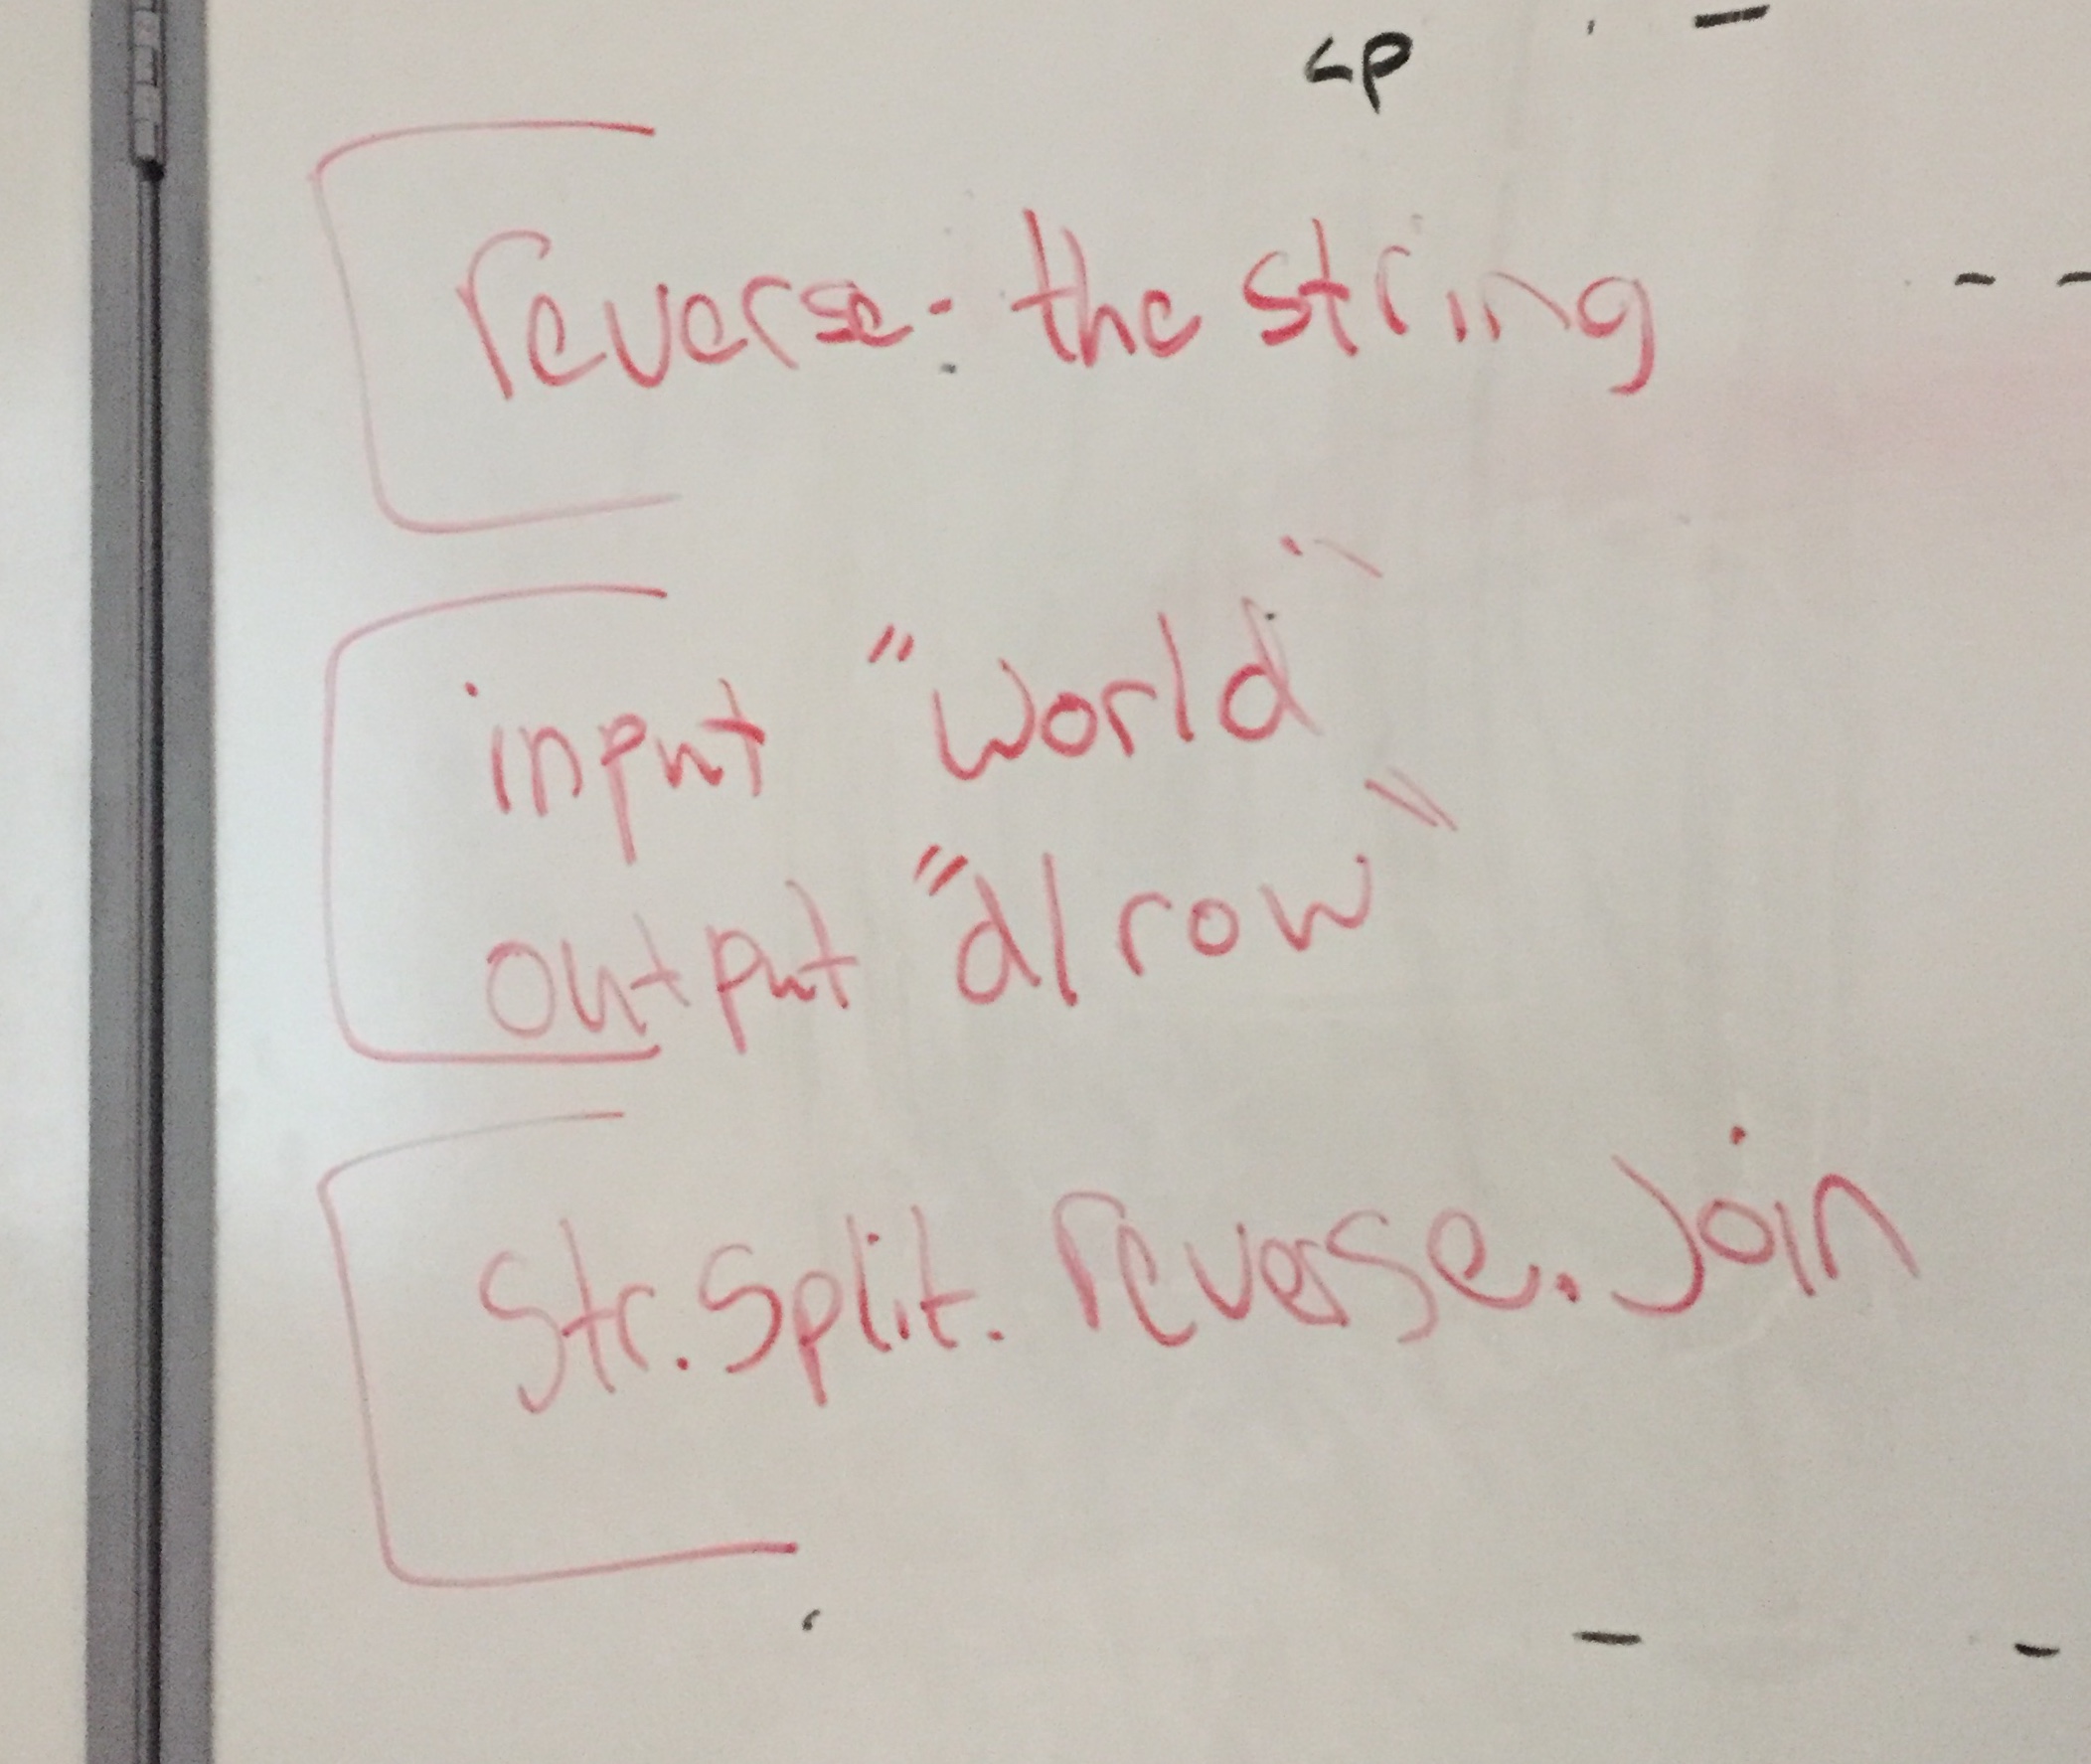 <p
reverse: the string
input "world"
output "dlrow"
Str.Split.reverse.Join